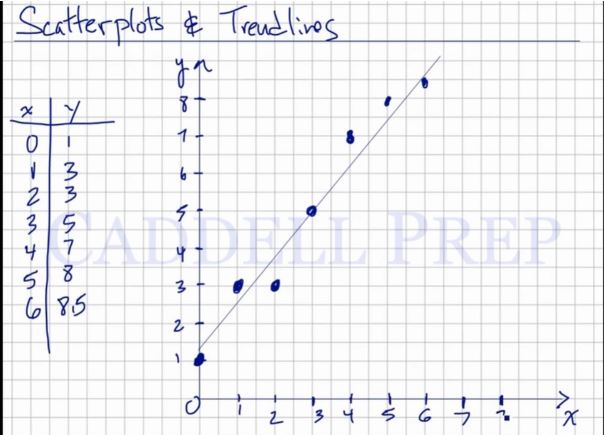 Scatterplots & Trendlines
x y
0 1
1 3
2 3
3 5
4 7
5 8
6 8.5
y
8
7
6
5
4
3
2
1
0 1 2 3 4 5 6 7
x
CADDELL PREP